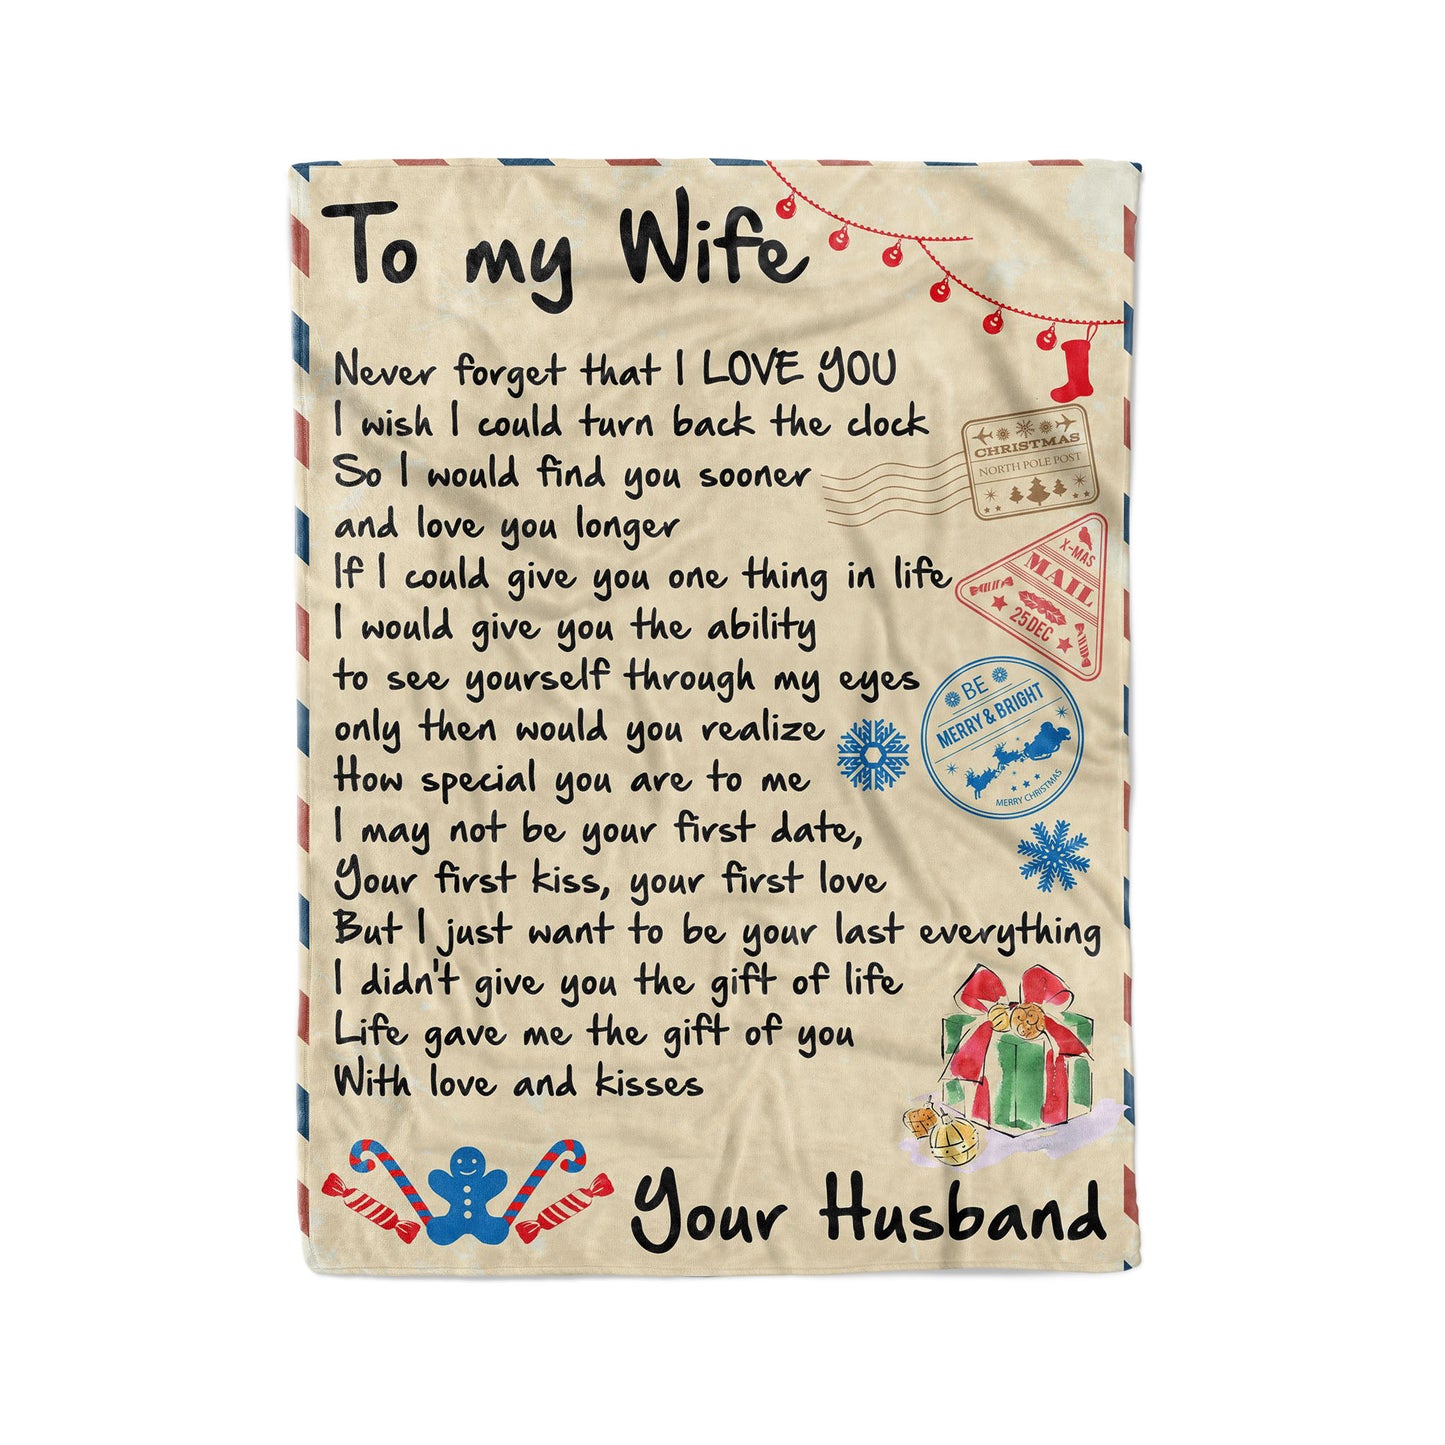 To my Wife
Never forget that I LOVE YOU
I wish I could turn back the clock
So I would find you sooner
and love you longer
If I could give you one thing in life
I would give you the ability
to see yourself through my eyes
only then would you realize
How special you are to me
I may not be your first date,
Your first kiss, your first love
But I just want to be your last everything
I didn't give you the gift of life
Life gave me the gift of you
With love and kisses
Your Husband
CHRISTMAS
NORTH POLE POST
X-MAS
MAIL
25 DEC
BE
MERRY & BRIGHT
MERRY CHRISTMAS